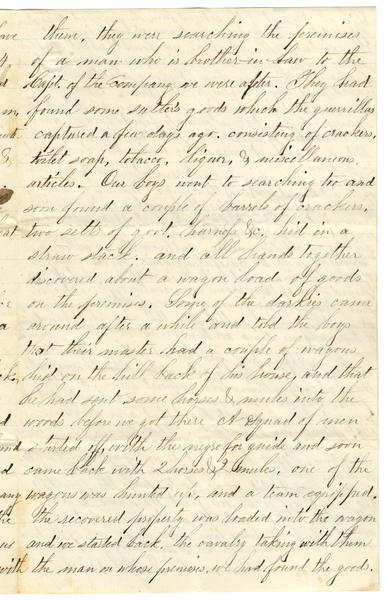 them, they were searching the premises
of a man who is brother-in-law to the
Capt. of the company we were after. They had
found some sutler's goods which the guerrillas
captured a few days ago. consisting of crackers,
toilet soap, tobacco, liquor, & miscellaneous
articles. Our boys went to searching too and
soon found a couple of barrels of crackers,
two sett of govt. harness &c, hid in a
straw stack. and all hands together
discovered about a wagon load of goods
on the premises. Some of the darkies came
around after a while and told the boys
that their master had a couple of wagons
hid on the hill back of his house, and that
he had sent some horses & mules into the
woods before we got there A squad of men
started off with the negro for guide and soon
came back with 2 horses & 2 mules, one of the
wagons was hunted up, and a team equipped.
the recovered property was loaded into the wagon
and we started back. the cavalry taking with them
the man on whose premises we had found the goods.